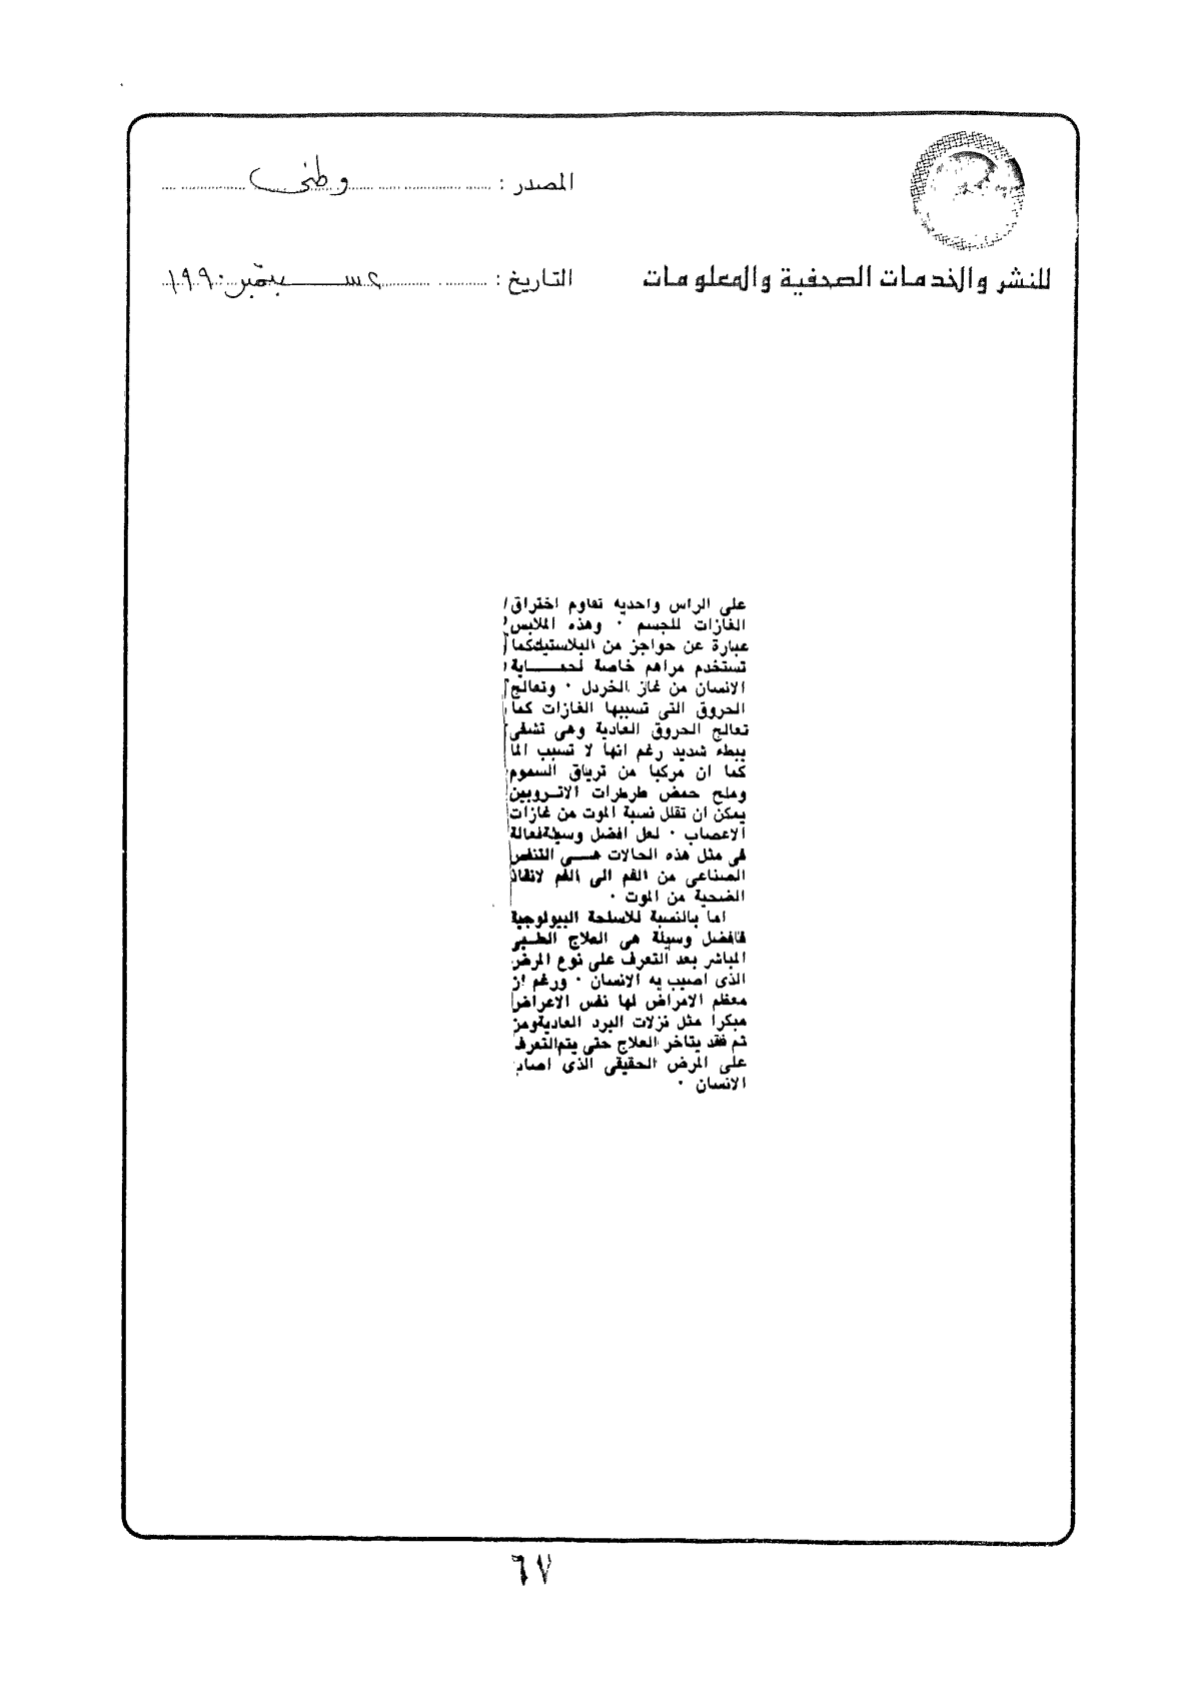 المصدر : وطنى
للنشر والخدمات الصحفية والمعلومات
التاريخ : ٢ سبتمبر ١٩٩٠
على الراس واحديه تقاوم اختراق
الغازات للجسم ٠ وهذه الملابس
عبارة عن حواجز من البلاستيك كما
تستخدم مراهم خاصة لحمـــاية
الانسان من غاز الخردل ٠ وتعالج
الحروق التى تسببها الغازات كما
تعالج الحروق العادية وهى تشفى
ببطء شديد رغم انها لا تسبب الما
كما ان مركبا من ترياق السموم
وملح حمض طرطرات الاتروبين
يمكن ان تقلل نسبة الموت من غازات
الاعصاب ٠ لعل افضل وسيلة فعالة
فى مثل هذه الحالات هــى التنفس
الصناعى من الفم الى الفم لانقاذ
الضحية من الموت ٠
اما بالنسبة للاسلحة البيولوجية
فافضل وسيلة هى العلاج الطـبى
المباشر بعد التعرف على نوع المرض
الذى اصيب به الانسان ٠ ورغم ان
معظم الامراض لها نفس الاعراض
مبكرا مثل نزلات البرد العادية ومن
ثم فقد يتاخر العلاج حتى يتم التعرف
على المرض الحقيقى الذى اصاب
الانسان ٠
٦٧